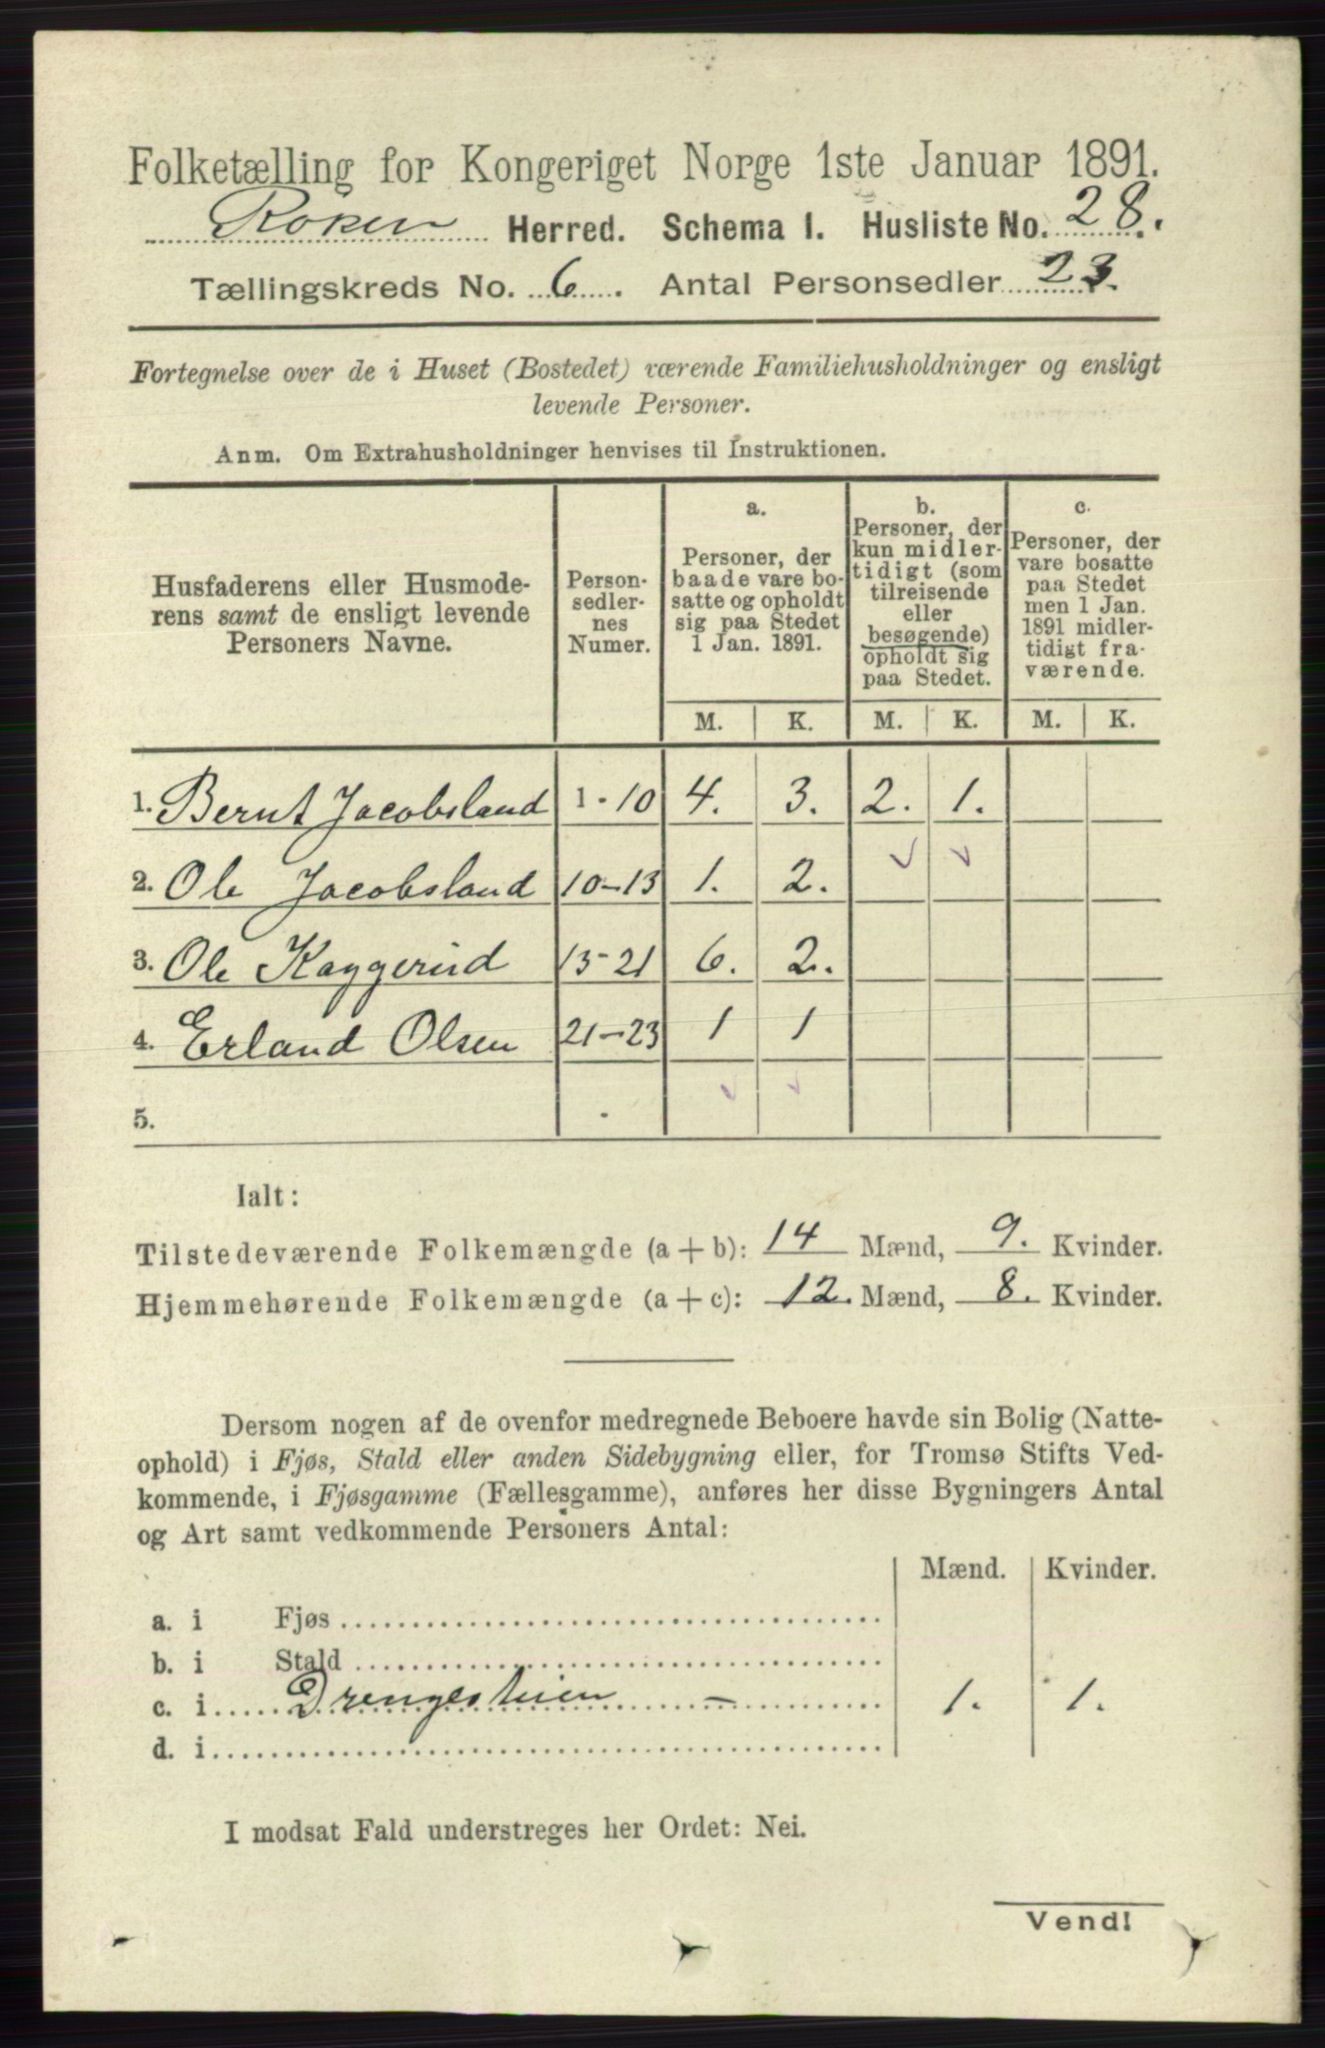 Folketælling for Kongeriget Norge 1ste Januar 1891.
Röken Herred. Schema I. Husliste No. 28.
Tællingskreds No. 6. Antal Personsedler 23.
Fortegnelse over de i Huset (Bostedet) værende Familiehusholdninger og ensligt
levende Personer.
Anm. Om Extrahusholdninger henvises til Instruktionen.
Husfaderens eller Husmode-
rens samt de ensligt levende
Personers Navne.
Person-
sedler-
nes
Numer.
a.
Personer, der
baade vare bo-
satte og opholdt
sig paa Stedet
1 Jan. 1891.
b.
Personer, der
kun midler-
tidigt (som
tilreisende
eller
besøgende)
opholdt sig
paa Stedet.
c.
Personer, der
vare bosatte
paa Stedet
men 1 Jan.
1891 midler-
tidigt fra-
værende.
M. K. M. K. M. K.
1. Bernt Jacobsland 1-10 4. 3. 2. 1.
2. Ole Jacobsland 10-13 1. 2.
3. Ole Kaggerud 13-21 6. 2.
4. Erland Olsen 21-23 1 1
5.
Ialt:
Tilstedeværende Folkemængde (a + b): 14 Mænd, 9. Kvinder.
Hjemmehørende Folkemængde (a + c): 12. Mænd, 8. Kvinder.
Dersom nogen af de ovenfor medregnede Beboere havde sin Bolig (Natte-
ophold) i Fjøs, Stald eller anden Sidebygning eller, for Tromsø Stifts Ved-
kommende, i Fjøsgamme (Fællesgamme), anføres her disse Bygningers Antal
og Art samt vedkommende Personers Antal:
Mænd. Kvinder.
a. i Fjøs
b. i Stald
c. i Drengestuen - 1. 1.
d. i
I modsat Fald understreges her Ordet: Nei.
Vend!